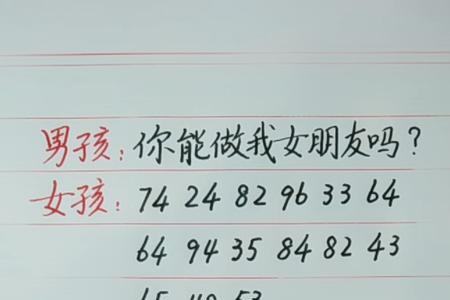 男孩：你能做我女朋友吗？
女孩：74 24 82 96 33 64
64 94 35 84 82 43